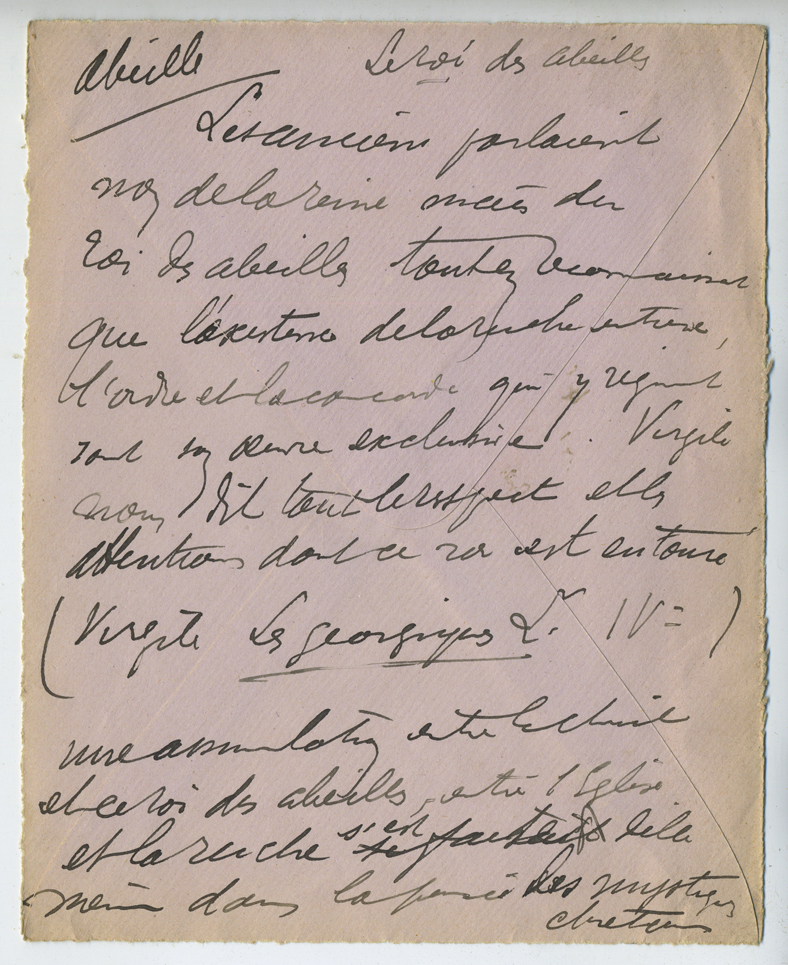 Abeille Le roi des abeilles
Les anciens parlaient
non de la reine mais du
roi des abeilles tout en reconnaissant
que l'existence de la ruche entière,
l'ordre et la concorde qui y règnent
sont son œuvre exclusive. Virgile
nous dit tout le respect et les
attentions dont ce roi est entouré
(Virgile Les georgiques L. IV=)
une assimilation entre le Christ
et ce roi des abeilles, entre l'Eglise
et la ruche s'est faite d'elle
même dans la pensée des mystiques
chretiens